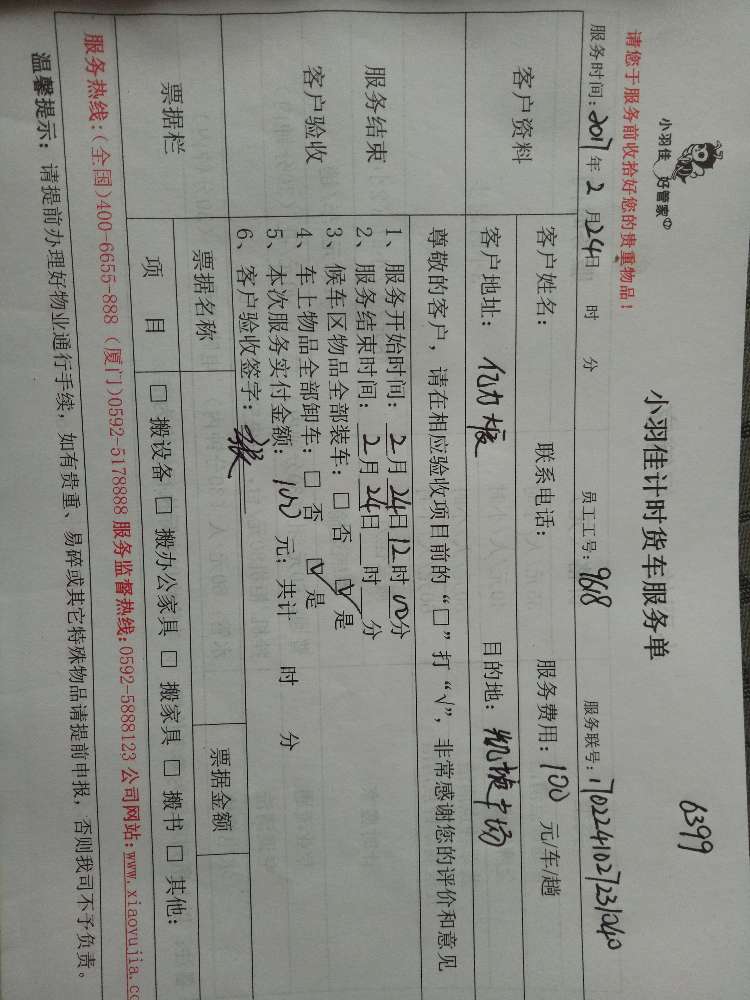 小羽佳 好管家
小羽佳计时货车服务单
6399
请您于服务前收拾好您的贵重物品！
服务时间：2017年2月24日 时 分 员工工号：968 服务联号：1702241027231040
客户资料
客户姓名： 联系电话： 服务费用：100 元/车/趟
客户地址： 目的地：广场
尊敬的客户，请在相应验收项目前的“□”打“√”，非常感谢您的评价和意见
服务结束
客户验收
1、服务开始时间：2月24日12时00分
2、服务结束时间：2月24日 时 分
3、候车区物品全部装车：□ 否 ☑ 是
4、车上物品全部卸车：□ 否 ☑ 是
5、本次服务实付金额：100 元；共计 时 分
6、客户验收签字：张
票据栏
票据名称 票据金额
项 目 □ 搬设备 □ 搬办公家具 □ 搬家具 □ 搬书 □ 其他：
服务热线：(全国)400-6655-888 (厦门)0592-5178888 服务监督热线：0592-5888123 公司网站：www.xiaoyujia.co
温馨提示： 请提前办理好物业通行手续，如有贵重、易碎或其它特殊物品请提前申报，否则我司不予负责。